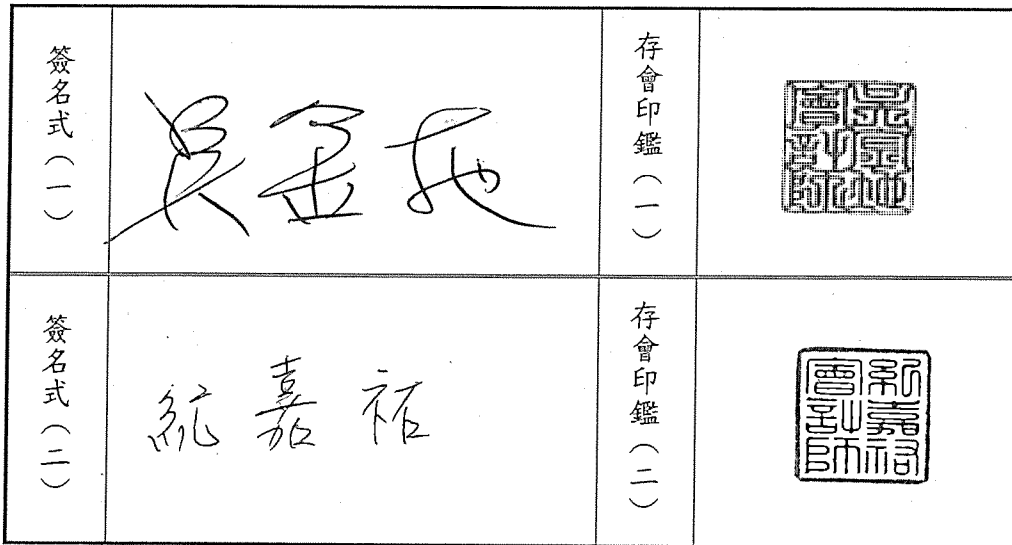 簽名式（一）
吳金地
存會印鑑（一）
吳金地
會計師
簽名式（二）
紀嘉祐
存會印鑑（二）
紀嘉祐
會計師